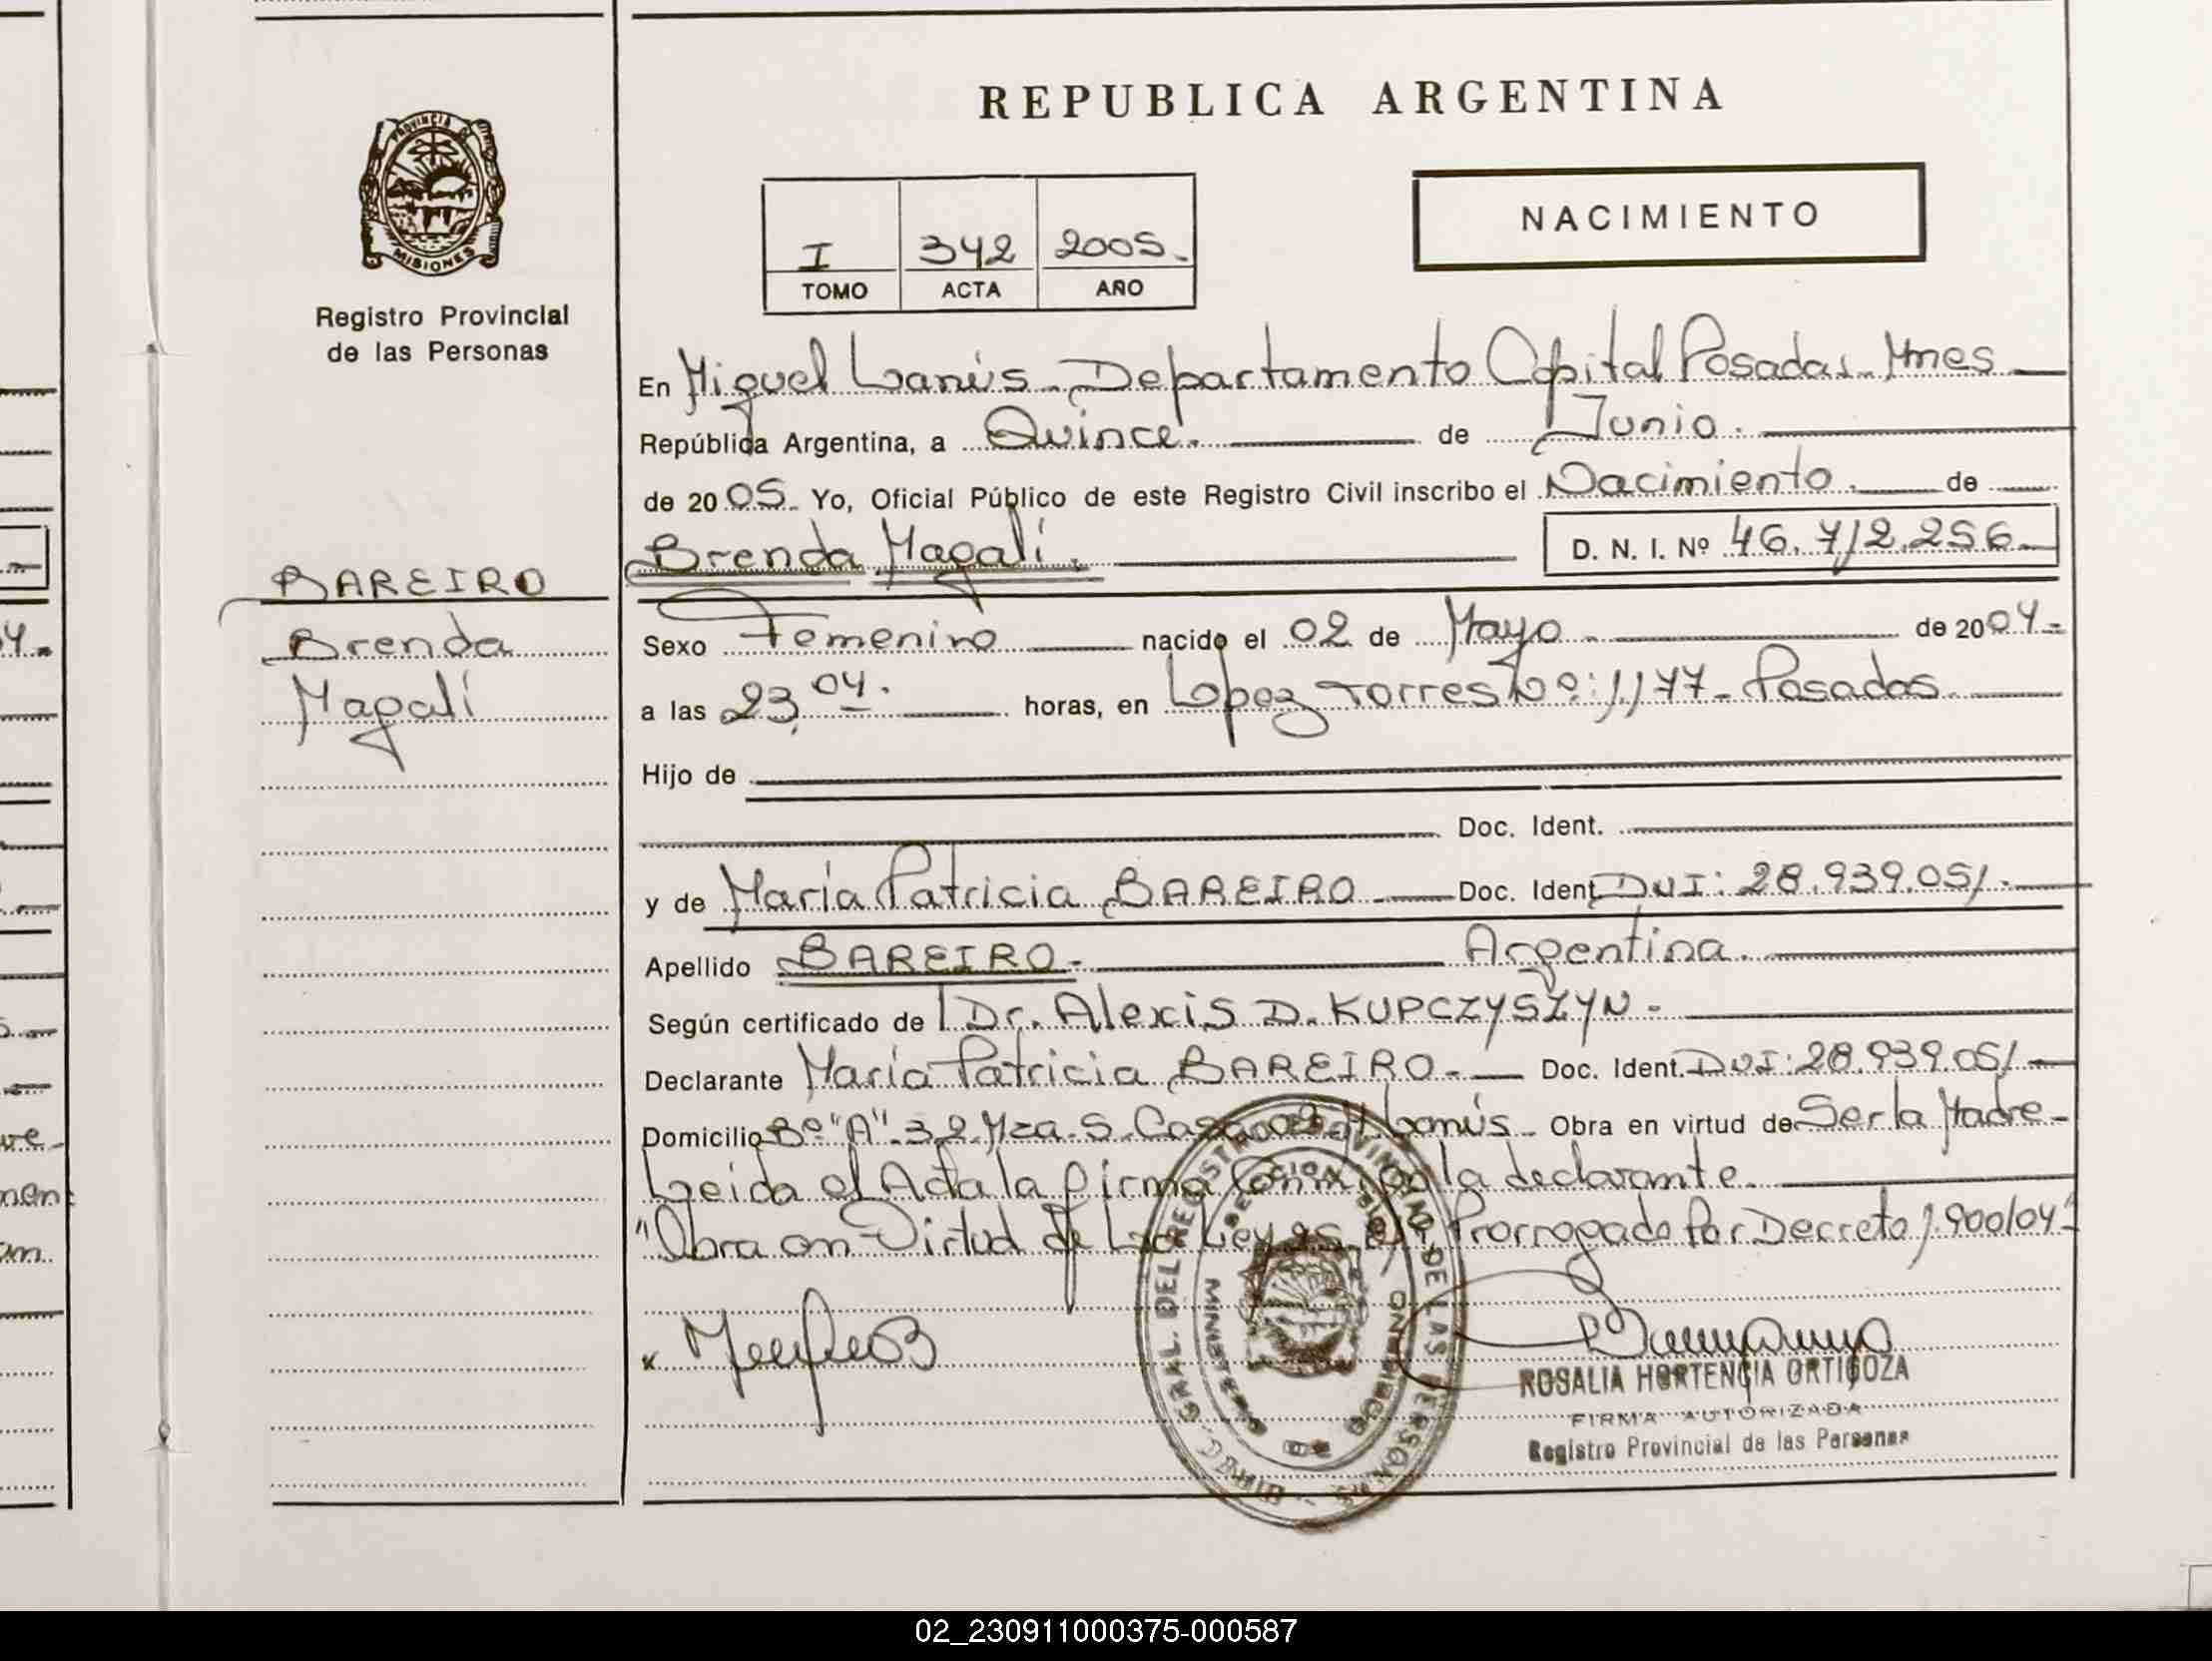 PROVINCIA DE
MISIONES
Registro Provincial
de las Personas
BAREIRO
Brenda
Magalí
REPUBLICA ARGENTINA
NACIMIENTO
I 342 2005.
TOMO ACTA AÑO
En Miguel Lanús - Departamento Capital Posadas - Mnes
República Argentina, a Quince. de Junio.
de 2005. Yo, Oficial Público de este Registro Civil inscribo el Nacimiento. de
Brenda Magalí. D. N. I. Nº 46.712.256.
Sexo Femenino nacido el 02 de Mayo de 2004.
a las 23,04. horas, en Lopez Torres Nº: 1177 - Posadas
Hijo de
Doc. Ident.
y de María Patricia BAREIRO Doc. Ident. DNI: 28.939.051.
Apellido BAREIRO. Argentina.
Según certificado de Dr. Alexis D. KUPCZYSZYN.
Declarante María Patricia BAREIRO. Doc. Ident. DNI: 28.939.051
Domicilio Bº "A" 32 Mza. S. Casa 02 M. Lanús Obra en virtud de Ser la Madre
Leida el Acta la firma Conmigo la declarante.
"Obra en Virtud de La Ley Prorrogado Por Decreto 1.900/04"
ROSALIA HORTENCIA ORTIGOZA
FIRMA AUTORIZADA
Registro Provincial de las Personas
02_230911000375-000587